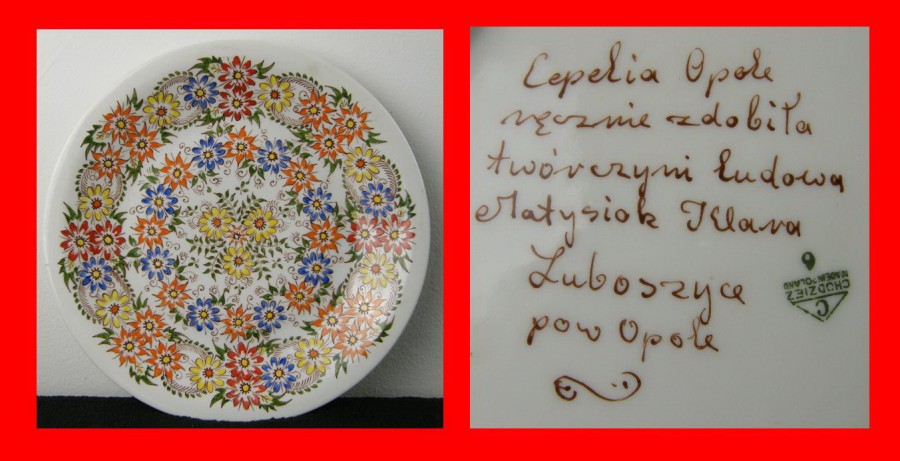 Cepelia Opole
ręcznie zdobiła
twórczyni ludowa
Matysiok Klara
Luboszyce
pow Opole
CHODZIEŻ
MADE IN POLAND